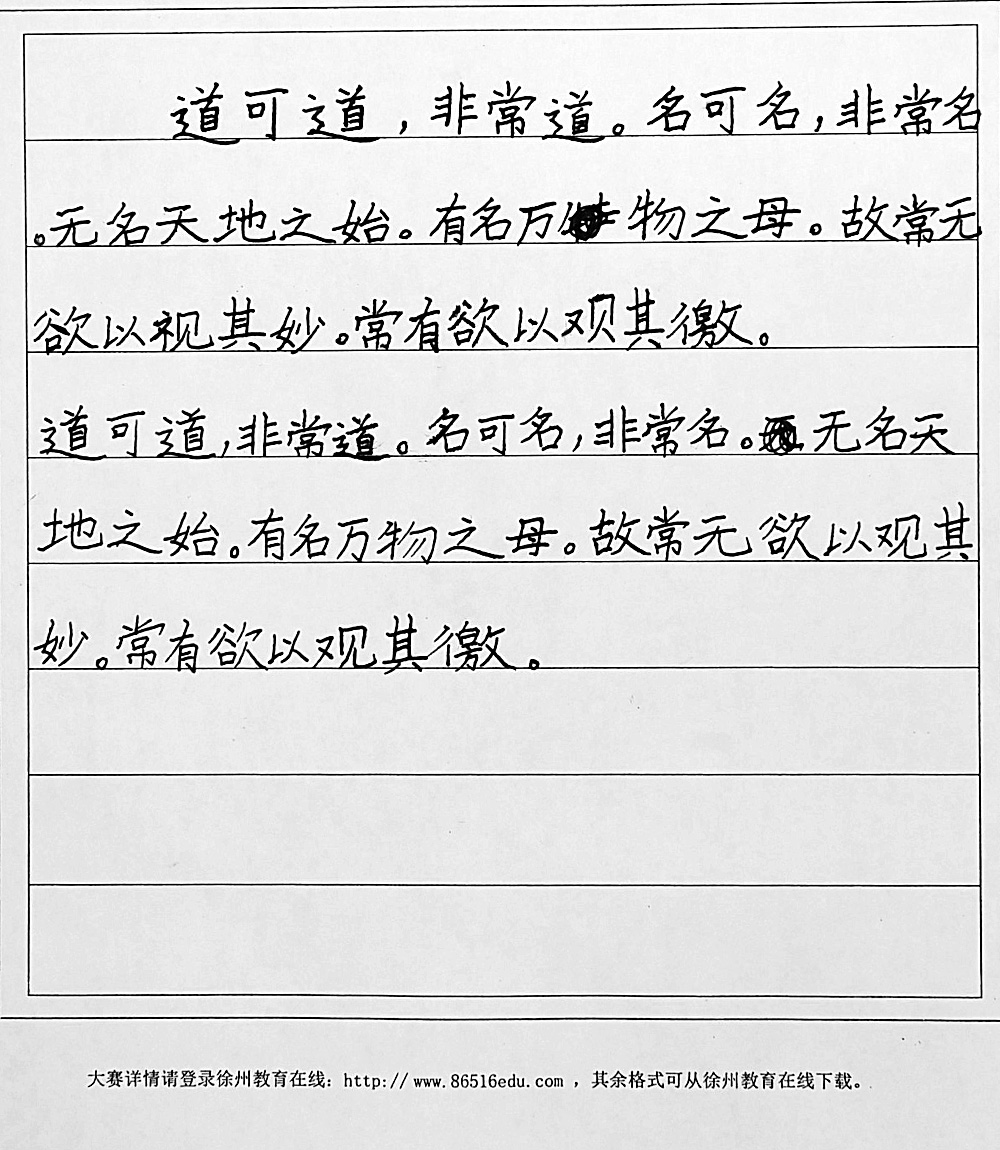 道可道，非常道。名可名，非常名
。无名天地之始。有名万物之母。故常无
欲以视其妙。常有欲以观其徼。
道可道，非常道。名可名，非常名。无名天
地之始。有名万物之母。故常无欲以观其
妙。常有欲以观其徼。
大赛详情请登录徐州教育在线：http://www.86516edu.com，其余格式可从徐州教育在线下载。